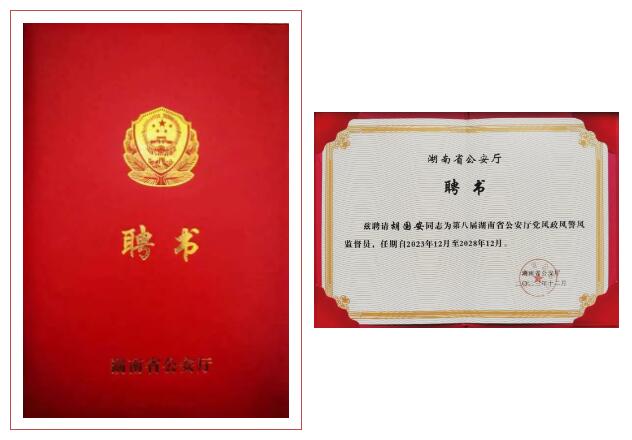 聘书
湖南省公安厅
湖南省公安厅
聘 书
兹聘请胡国安同志为第八届湖南省公安厅党风政风警风
监督员，任期自2023年12月至2028年12月。
湖南省公安厅
二〇二三年十二月